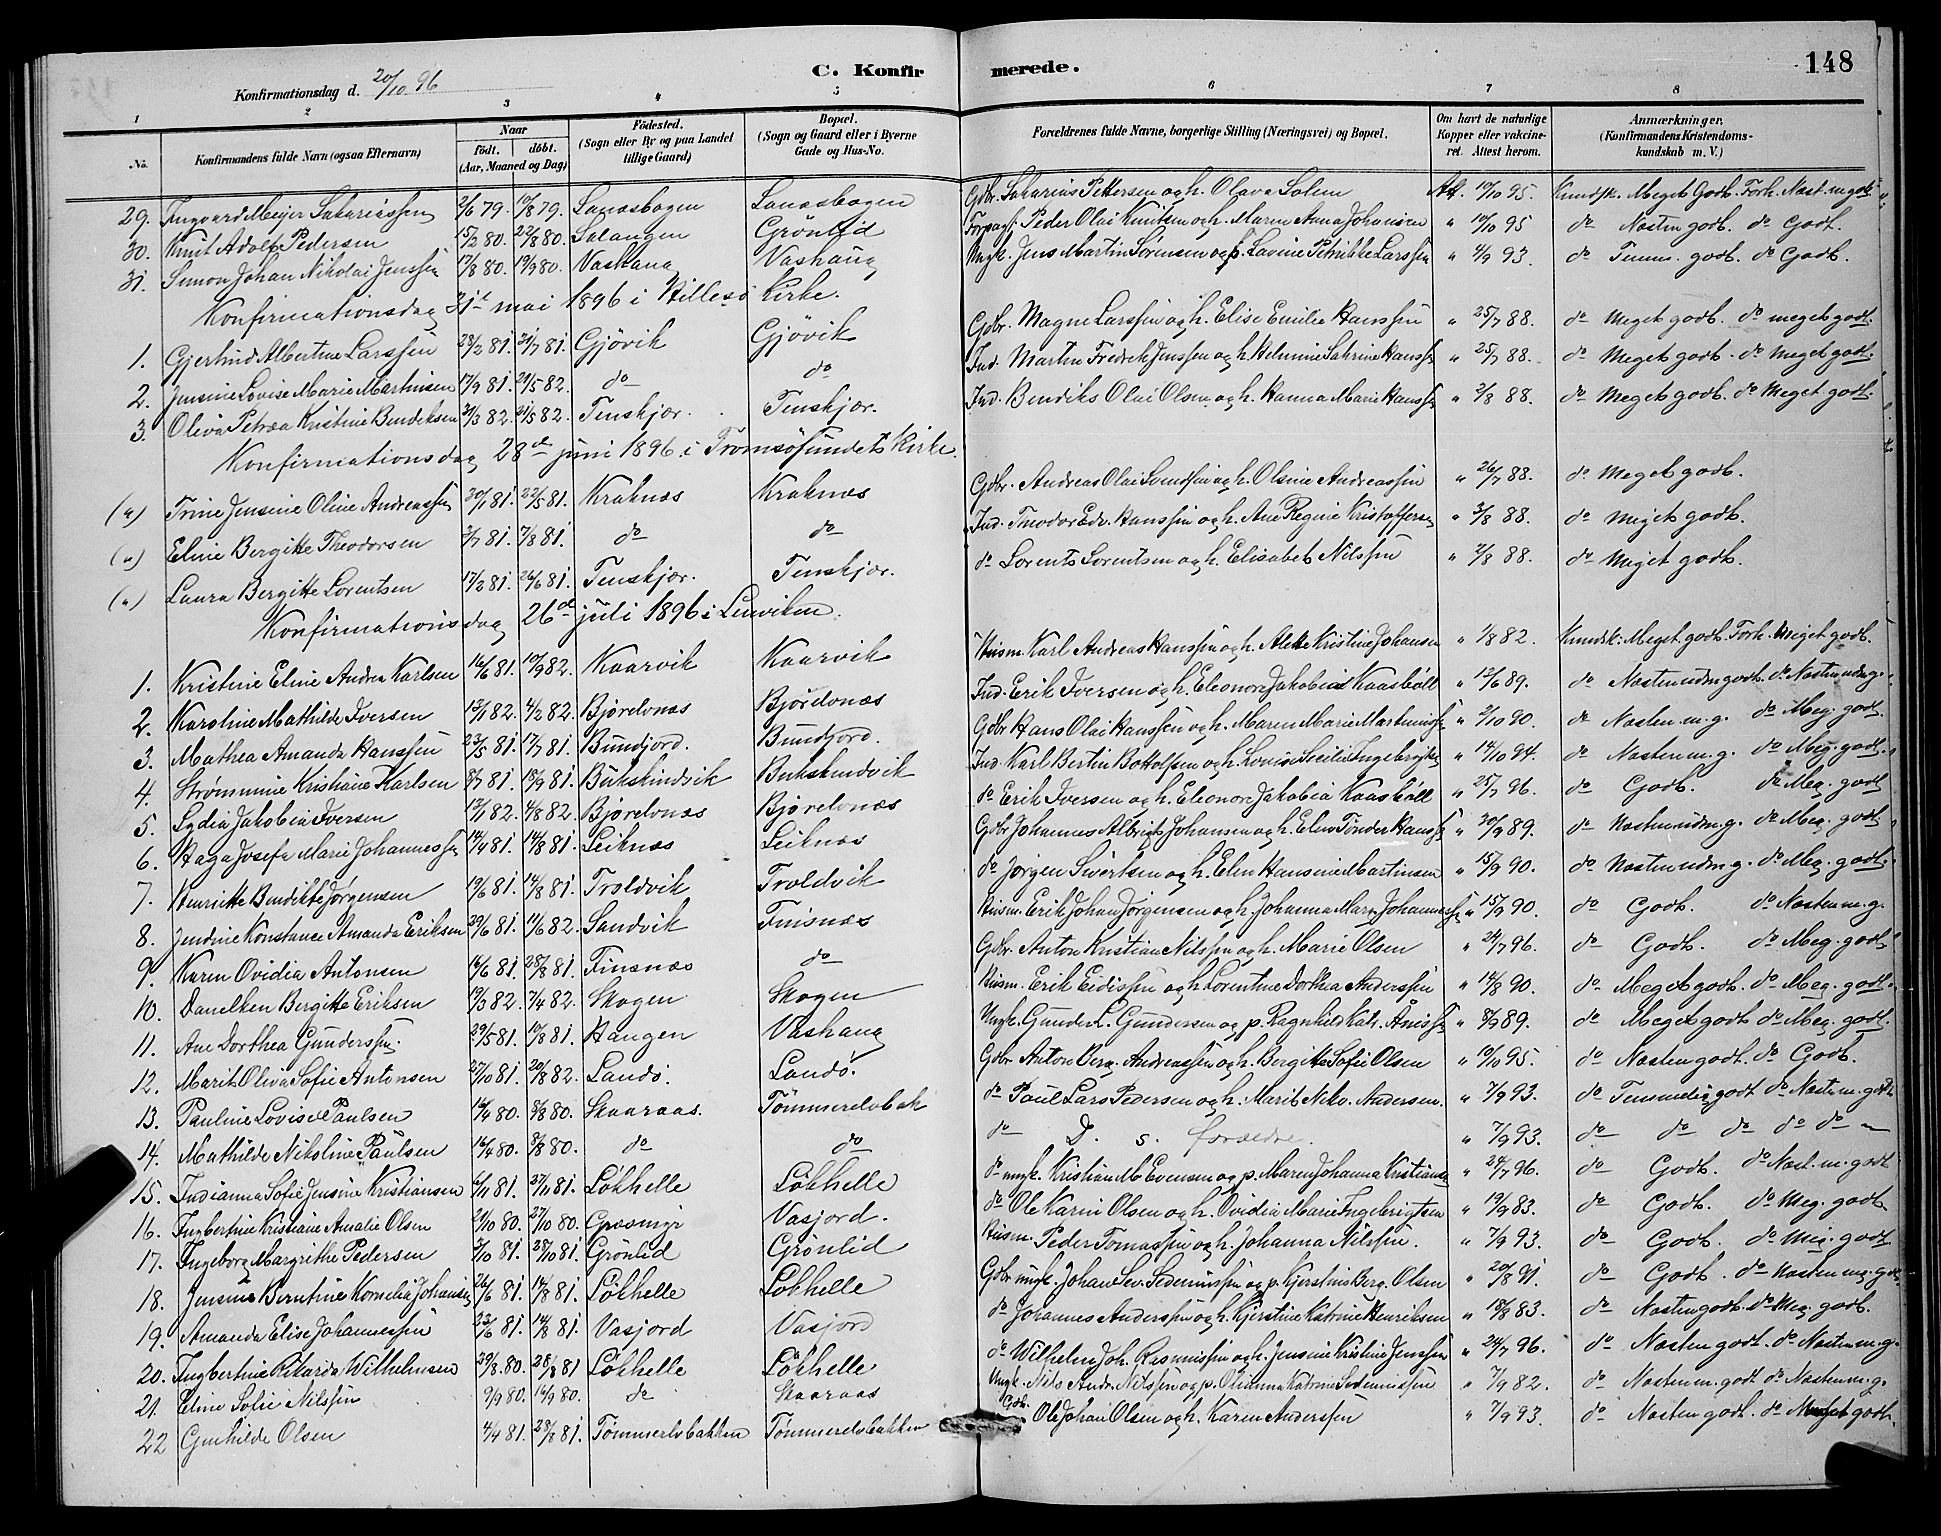 C. Konfirmerede. 148
Konfirmationsdag d. 20/10 96
1 2 3 4 5 6 7 8
No. Konfirmandens fulde Navn (ogsaa Efternavn) Naar født. døbt. (Aar, Maaned og Dag) Födested. (Sogn eller By og paa Landet tillige Gaard) Bopæl. (Sogn og Gaard eller i Byerne Gade og Hus-No. Forældrenes fulde Navne, borgerlige Stilling (Næringsvei) og Bopæl. Om havt de naturlige Kopper eller vakcineret. Attest herom. Anmærkninger. (Konfirmandens Kristendomskundskab m. V.)
29. Ingvard Meijer Sakariassen 2/6 79. 10/8 79. Lanasbogen Lanasbogen Gdbr. Sakarius Pettersen og h. Olava Solem Att. 19/10 95. Kundsk. Meget Godt. Forh. Næst. m. godt
30. Knut Adolf Pedersen 15/2 80. 22/8 80. Salangen Grönlid Peder Olai Knutsen og h. Maren Anna Johansen " 19/10 95 do Næsten godt. do Godt.
31. Simon Johan Nikolai Jenssen 17/8 80. 19/9 80. Vashaug Vashaug Ungk. Jens Martin Sörensen og p. Lavine Petrikke Larssen " 4/9 93. do Temm. godt. do Godt.
Konfirmationsdag 31te mai 1896 i Hillesö Kirke.
1. Gjertrud Albertine Larssen 28/2 81. 31/7 81. Gjövik Gjövik Gdbr. Magne Larssen og h. Elise Emilie Hanssen " 25/7 88. do Meget godt. do meget godt.
2. Jensine Lovise Marie Martinsen 17/9 81. 29/5 82. do do Ind. Martin Fredrik Jenssen og h. Helmine Katrine Hanss " 25/7 88. do Meget godt. do Meget godt.
3. Oliva Petræa Kristine Bendiksen 31/3 82. 21/5 82. Tenskjær. Tenskjær. Ind. Bendiks Olai Olsen og h. Hanna Marie Hanss " 2/8 88. do Meget godt. do Meget godt.
Konfirmationsdag 28de juni 1896 i Tromsösundets Kirke.
(a) Trine Jensine Oline Andreassen 20/1 81. 22/5 81. Kraknæs Kraknæs Gdbr. Andreas Olai Svendsen og h. Olsine Andreassen " 26/7 88. do Meget godt.
(a) Eline Bergitte Theodorsen 3/7 81. 7/8 81. do do Ind. Theodor Edv. Hanssen og h. Ane Regine Kristoffersen " 3/8 88. do Meget godt.
(a) Laura Bergitte Lorentsen 17/2 81. 26/6 81. Tenskjær. Tenskjær. do Lorents Lorentsen og h. Elisabet Nilssen " 2/8 88. do Meget godt.
Konfirmationsdag 26de juli 1896 i Lenviken.
1. Kristine Eline Andrea Karlsen 16/6 81. 10/9 82. Kaarvik Kaarvik Husm. Karl Andreas Hanssen og h. Alette Kristine Johansen " 1/8 82. Kundsk. Meget godt. Forh. Meget godt.
2. Karoline Mathilde Iversen 13/1 82. 4/2 82. Bjørelvnæs Bjørelvnæs Ind. Erik Iversen og h. Eleonore Jakobia Kaasböll " 12/6 89. do Næsten udm godt. do Næsten udm g.
3. Mathea Amanda Hanssen 23/5 81. 17/7 81. Bundjord. Bundjord. Gdbr Hans Olai Hanssen og h. Maren Marie Martinuss " 2/10 90. do Næsten m. g. do Meg. godt.
4. Strømmine Kristiane Karlsen 8/7 81. 18/9 81. Bukskindvik Bukskindvik Ind. Karl Bertin Bottolfsen og h. Lovise Secilie Ingebrigts " 14/10 94. do Næsten m. g. do Meg. godt.
5. Lydia Jakobia Iversen 13/1 82. 4/8 82. Bjørelvnæs Bjørelvnæs do Erik Iversen og h. Eleonore Jakobia Kaasböll " 25/7 96. do Godt. do Meg. godt
6. Haga Josefa Marie Johannessen 14/4 81. 14/8 81. Leiknæs Leiknæs Gdbr Johannes Albrigt Johansen og h. Elen Tönder Hanss " 30/9 89. do Næsten udm. g. do Meg. godt
7. Henriette Bendikte Jørgensen 19/6 81. 14/8 81. Troldvik Troldvik do Jørgen Sivertsen og h. Elen Hansine Martinsen " 15/9 90. do Næsten udm g. do Meg. godt.
8. Jendine Konstance Amanda Eriksen 29/6 81. 11/6 82. Sandvik Finsnæs Husm. Erik Johan Jörgensen og h. Johanna Marg. Johanness " 15/9 90. do Godt. do Næsten m. g.
9. Karen Ovidia Antonsen 16/6 81. 28/8 81. Finsnæs do Gdbr. Anton Kristian Nilssen og h. Marie Olsen " 24/7 96. do Godt. do Meg. godt
10. Danelken Bergitte Eriksen 19/3 82. 7/4 82. Skogen Skogen Husm. Erik Eidissen og h. Lorentine Dorthea Anderssen " 14/8 90. do Meget godt. do Meg. godt.
11. Ane Dorthea Gunderssen. 29/5 81. 10/8 81. Haugen Vashaug Ungk. Gunder L. Gundersen og p. Ragnhild Katr. Åness " 8/9 89. do Meget godt do Meg. godt.
12. Marit Oliva Sofie Antonsen 27/10 81. 20/8 82. Sandö. Sandö. Gdbr Anton Berg. Andreassen og h. Bergitte Sofie Olsen " 19/10 95. do Næsten godt. do Godt.
13. Pauline Lovise Paulsen 16/4 80. 8/8 80. Skaaraas. Tömmerelvbak do Paul Lars Pedersen og h. Marit Nikv. Andersen. " 7/9 93. do Temmelig godt do Næsten m. godt
14. Mathilde Nikoline Paulsen 16/4 80. 8/8 80. do do do D. s. forældre. " 7/9 93. do do do do do
15. Indianna Sofie Jensine Kristiansen 6/11 81. 27/11 81. Lökhelle Lökhelle do ungk. Kristian M Evensen og p. Maren Johanna Kristians " 24/7 96. do Godt. do Næst. m. godt
16. Ingbertine Kristiane Amalie Olsen 2/10 80. 27/10 80. Græsmyr Vasjord. do Ole Karin Olsen og h. Ovidia Marie Ingebrigtsen " 19/9 83. do Godt. do Meg. godt.
17. Ingeborg Margrethe Pedersen 3/10 81. 28/10 81. Grönlid Grönlid Husm. Peder Tomassen og h. Johanna Nilssen. " 7/9 93. do Godt. do Meg. godt
18. Jensine Berntine Kornelia Johansen 26/6 81. 14/8 81. Lökhelle Lökhelle Gdbr ungk. Johan Sev. Sedeniussen og p. Kjerstine Berg. Olsen " 20/8 91. do Godt. do Næsten m. godt
19. Amanda Elise Johannessen 23/6 81. 14/8 81. Vasjord Vasjord do Johannes Anderssen og h. Kjerstine Katrine Henriksen " 18/8 83. do Næsten godt. do Meg. godt.
20. Ingbertine Rikarda Wilhelmsen 29/8 80. 28/8 81 Lökhelle Lökhelle do Wilhelm Joh. Rasmussen og h. Jensine Kristine Jenssen " 24/7 96. do Næsten godt. do Næsten m. g.
21. Eline Sofie Nilssen 9/9 80. 14/9 80. do Skaaraas Ungk. Nils Andr. Nilssen og p. Olianna Katrine Sedeniussen " 7/9 82. do Næsten m. godt do Næsten m. g.
22 Gunhilde Olsen 4/4 81. 28/8 81. Tömmerelvbakken Tömmerelvbakken Gdbr. Ole Johan Olsen og h. Karen Anderssen " 7/9 93. do Næsten godt. do Meget godt.